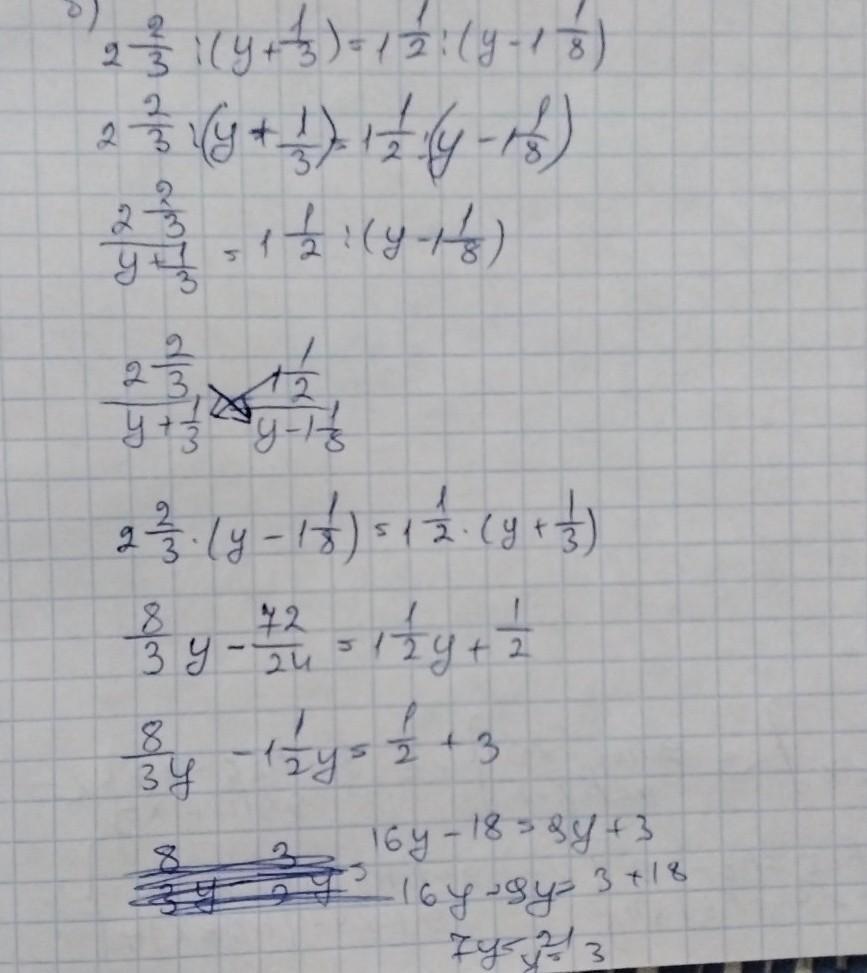 б)
2 2/3 : (y + 1/3) = 1 1/2 : (y - 1 1/8)
2 2/3 : (y + 1/3) = 1 1/2 : (y - 1 1/8)
(2 2/3)/(y + 1/3) = 1 1/2 : (y - 1 1/8)
(2 2/3)/(y + 1/3) (1 1/2)/(y - 1 1/8)
2 2/3 · (y - 1 1/8) = 1 1/2 · (y + 1/3)
8/3 y - 72/24 = 1 1/2 y + 1/2
8/3y - 1 1/2 y = 1/2 + 3
16y - 18 = 9y + 3
16y - 9y = 3 + 18
7y = 21
y = 3